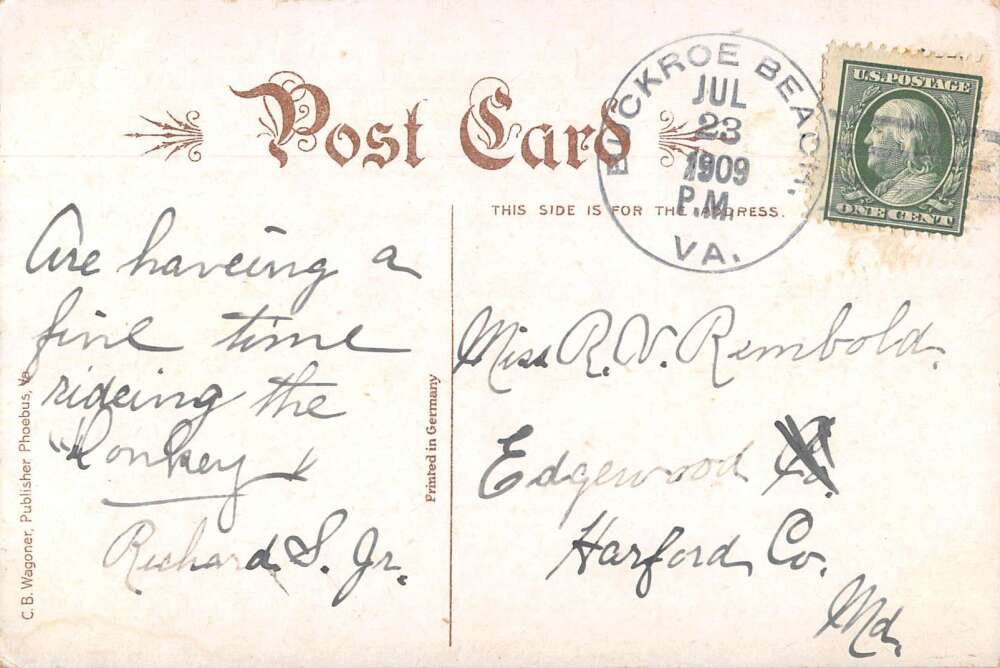 Post Card
THIS SIDE IS FOR THE ADDRESS.
BUCKROE BEACH,
JUL
23
1909
P.M.
VA.
U.S. POSTAGE
ONE CENT
Are haveing a
fine time
rideing the
"Donkey"
Richard S. Jr.
Miss R. V. Rembold.
Edgewood Co.
Harford Co.
Md.
Printed in Germany
C. B. Wagoner, Publisher, Phoebus, Va